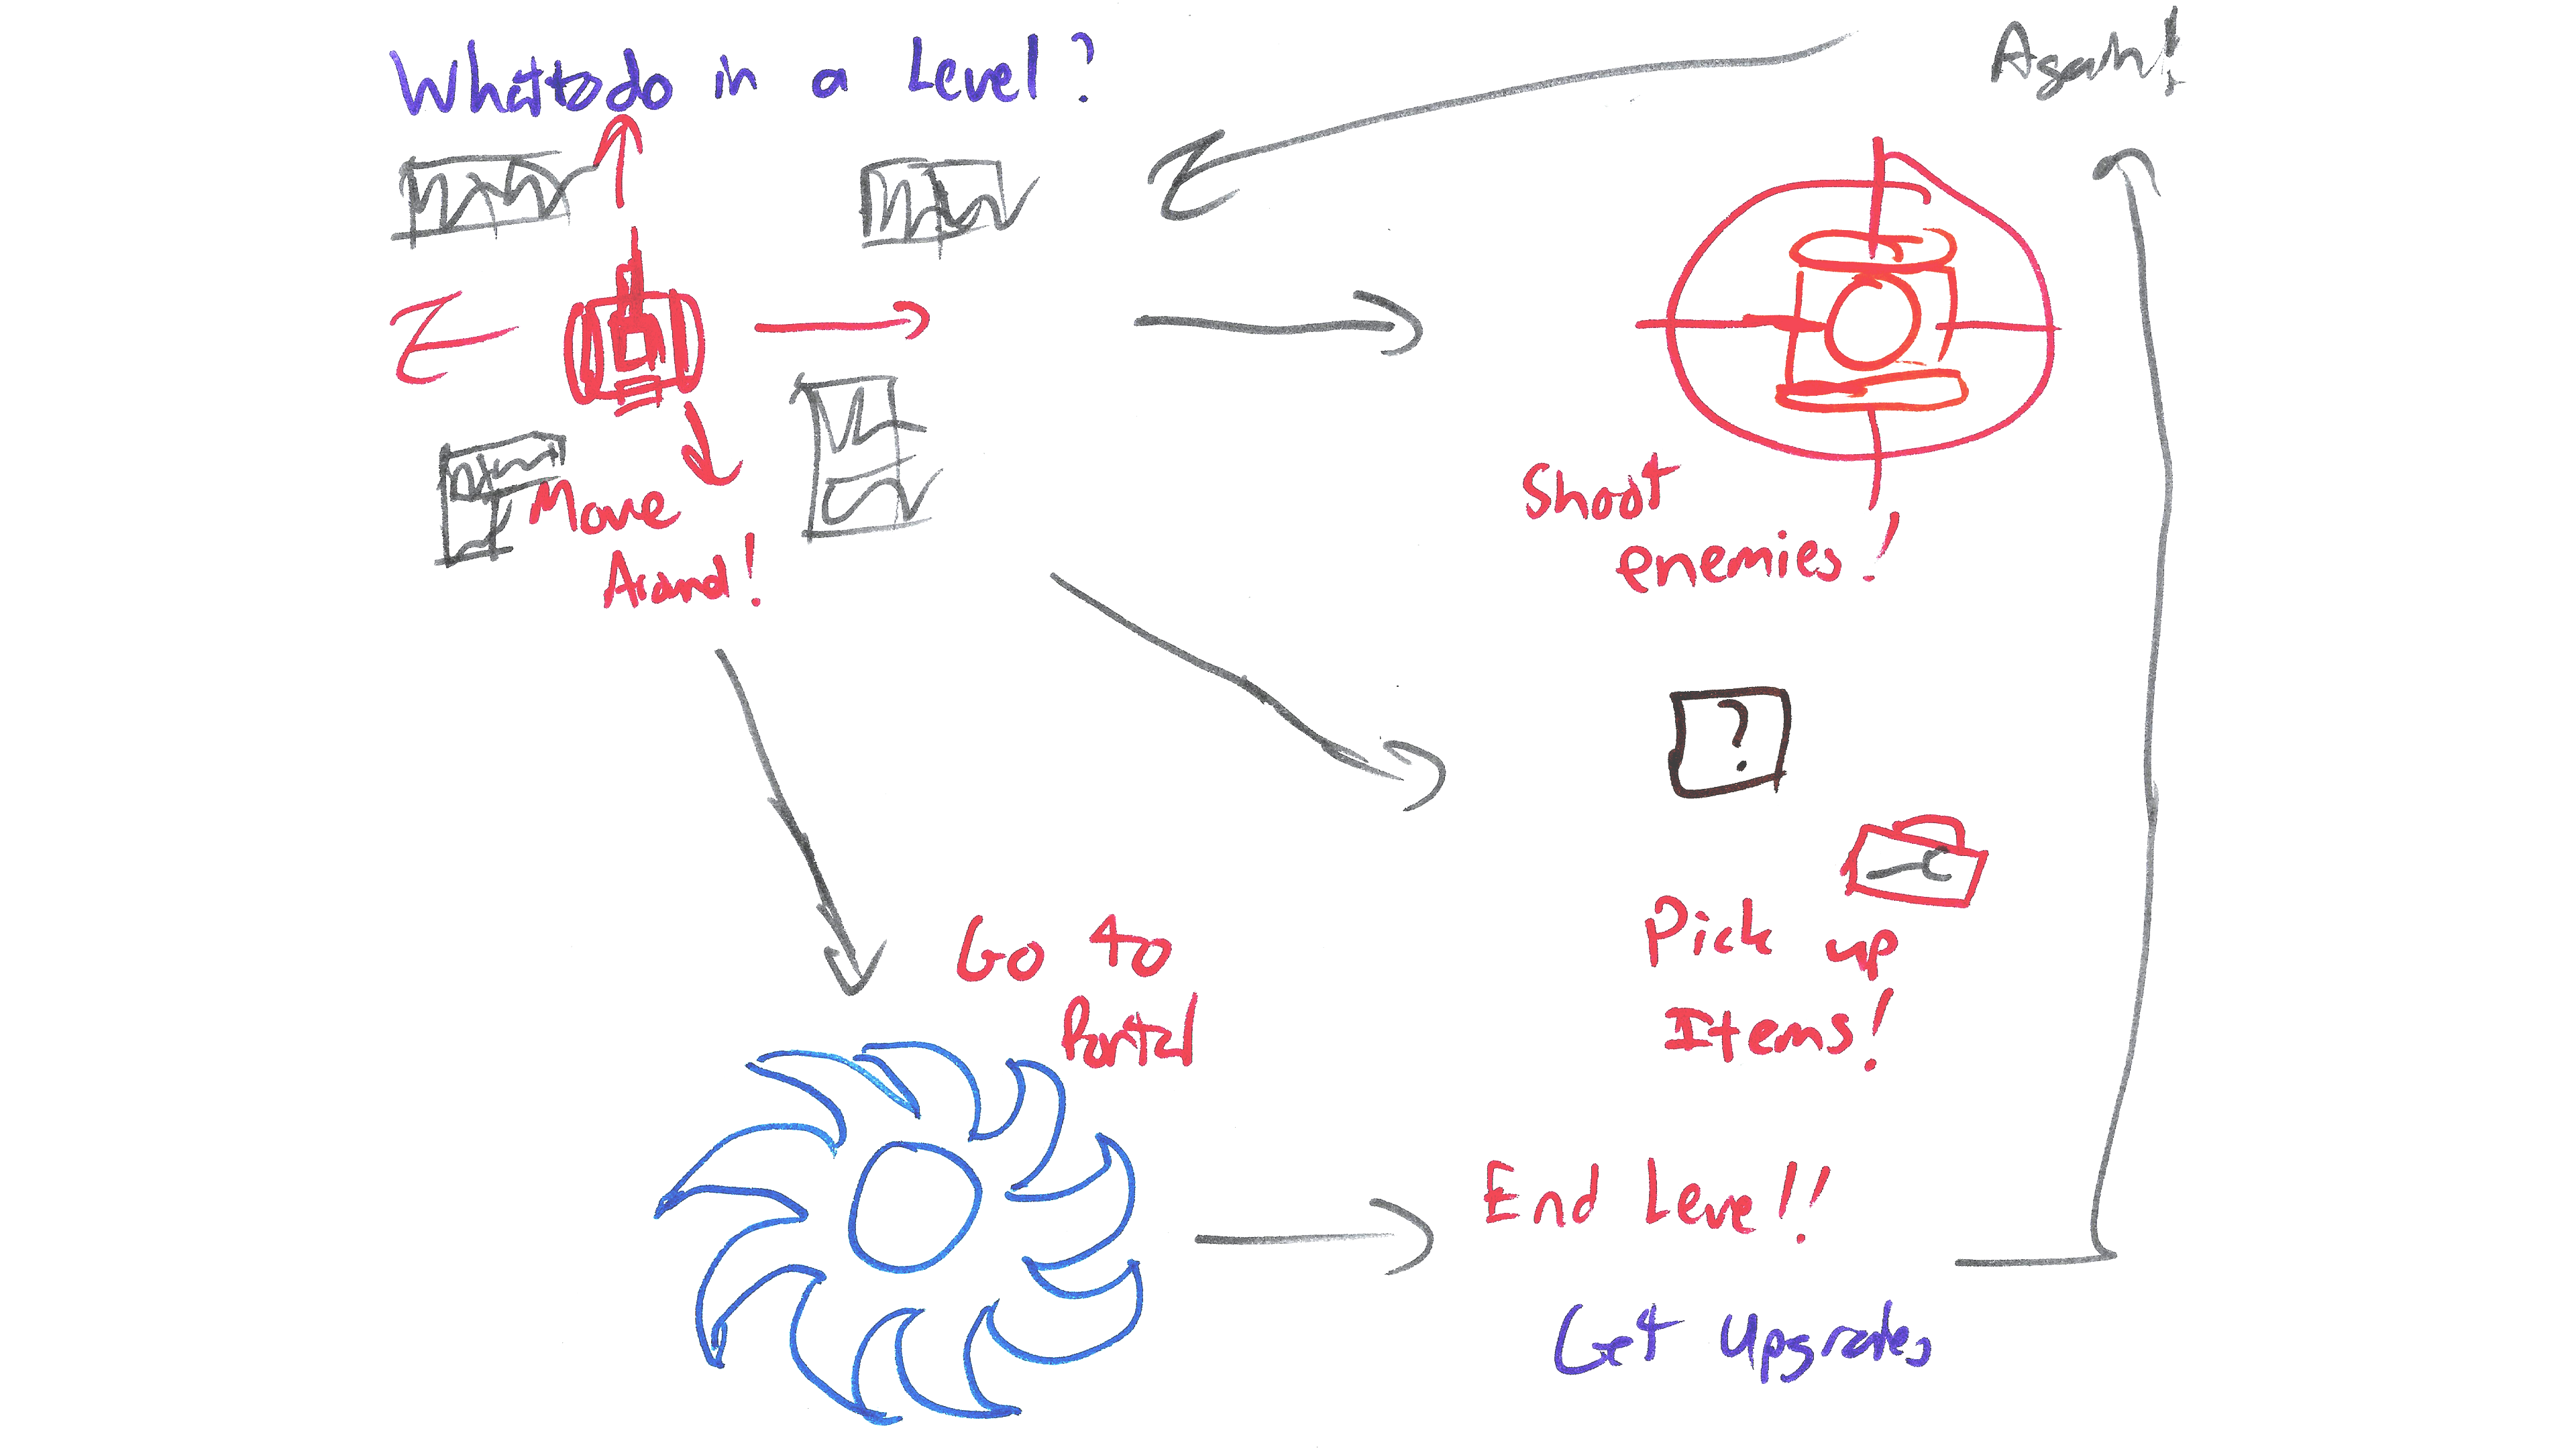 What to do in a Level?
Again!
Move
Around!
Shoot
enemies!
?
Pick up
Items!
Go to
Portal
End Level!!
Get Upgrades